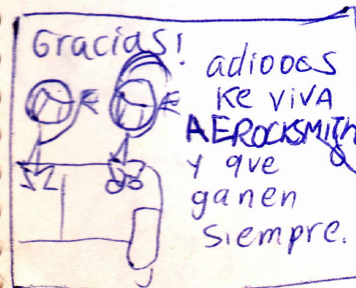 Gracias!
adiooos
Ke viva
AEROCKSMITH
y que
ganen
siempre.